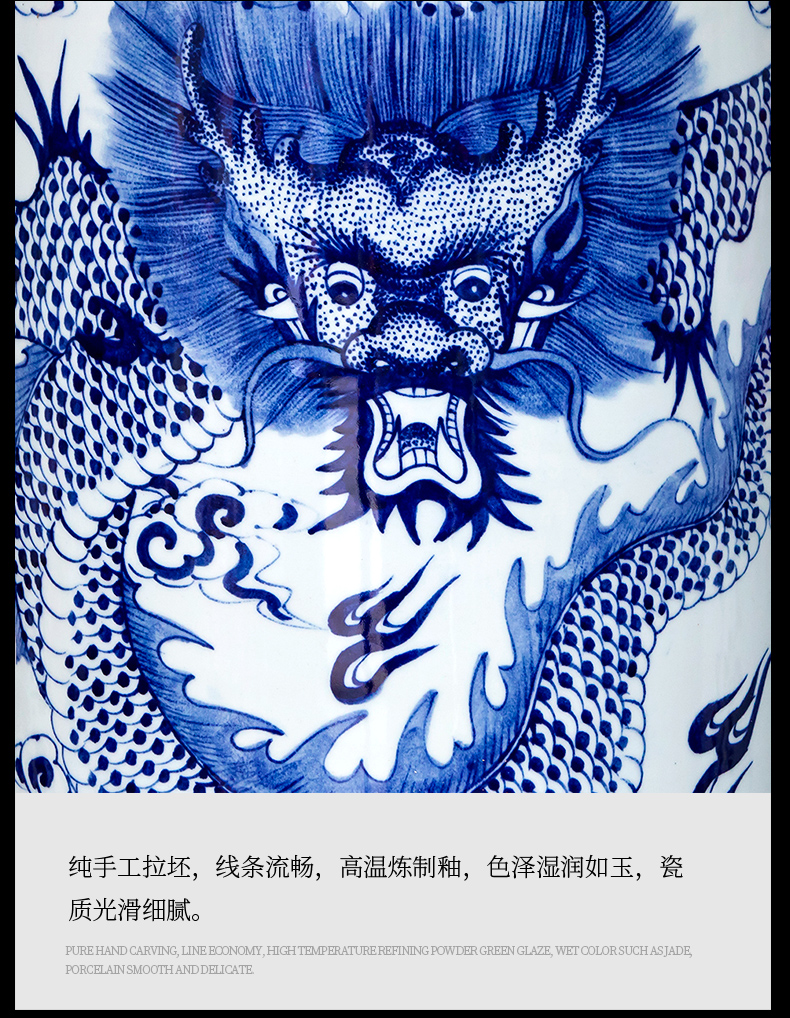 纯手工拉坯，线条流畅，高温炼制釉，色泽湿润如玉，瓷
质光滑细腻。
PURE HAND CARVING, LINE ECONOMY, HIGH TEMPERATURE REFINING POWDER GREEN GLAZE, WET COLOR SUCH AS JADE,
PORCELAIN SMOOTH AND DELICATE.